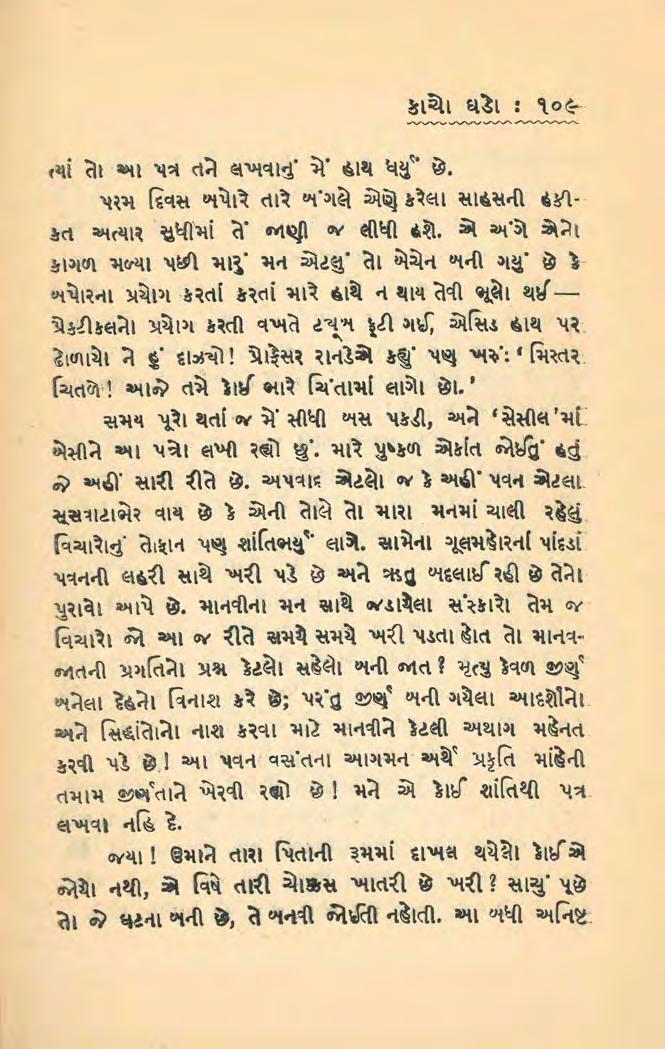 કાચો ઘડો : ૧૦૯
ત્યાં તો આ પત્ર તને લખવાનું મેં હાથ ધર્યું છે.
પરમ દિવસ બપોરે તારે બંગલે એણે કરેલા સાહસની હકી-
કત અત્યાર સુધીમાં તેં જાણી જ લીધી હશે. એ અંગે એનો
કાગળ મળ્યા પછી મારું મન એટલું તો બેચેન બની ગયું છે કે
બપોરના પ્રયોગ કરતાં કરતાં મારે હાથે ન થાય તેવી ભૂલો થઈ —
પ્રેક્ટીકલનો પ્રયોગ કરતી વખતે ટ્યૂબ ફૂટી ગઈ, એસિડ હાથ પર
ઢોળાયો ને હું દાઝ્યો! પ્રોફેસર રાનડેએ કહ્યું પણ ખરું: ‘મિસ્તર
ચિતળે! આજે તમે કોઈ ભારે ચિંતામાં લાગો છો.’
સમય પૂરો થતાં જ મેં સીધી બસ પકડી, અને ‘સેસીલ’માં
બેસીને આ પત્રો લખી રહ્યો છું. મારે પુષ્કળ એકાંત જોઈતું હતું
જે અહીં સારી રીતે છે. અપવાદ એટલો જ કે અહીં પવન એટલા
સૂસવાટાભેર વાય છે કે એની તોલે તો મારા મનમાં ચાલી રહેલું
વિચારોનું તોફાન પણ શાંતિભર્યું લાગે. સામેના ગૂલમહોરનાં પાંદડાં
પવનની લહરી સાથે ખરી પડે છે અને ઋતુ બદલાઈ રહી છે તેનો
પુરાવો આપે છે. માનવીના મન સાથે જડાયેલા સંસ્કારો તેમ જ
વિચારો જો આ જ રીતે સમયે સમયે ખરી પડતા હોત તો માનવ-
જાતની પ્રગતિનો પ્રશ્ન કેટલો સહેલો બની જાત? મૃત્યુ કેવળ જીર્ણ
બનેલા દેહનો વિનાશ કરે છે; પરંતુ જીર્ણ બની ગયેલા આદર્શોનો
અને સિદ્ધાંતોનો નાશ કરવા માટે માનવીને કેટલી અથાગ મહેનત
કરવી પડે છે! આ પવન વસંતના આગમન અર્થે પ્રકૃતિ માંહેની
તમામ જીર્ણતાને ખેરવી રહ્યો છે! મને એ કોઈ શાંતિથી પત્ર
લખવા નહિ દે.
જયા! ઉમાને તારા પિતાની રૂમમાં દાખલ થયેલો કોઈએ
જોયો નથી, એ વિષે તારી ચોક્કસ ખાતરી છે ખરી? સાચું પૂછે
તો જે ઘટના બની છે, તે બનવી જોઈતી નહોતી. આ બધી અનિષ્ટ